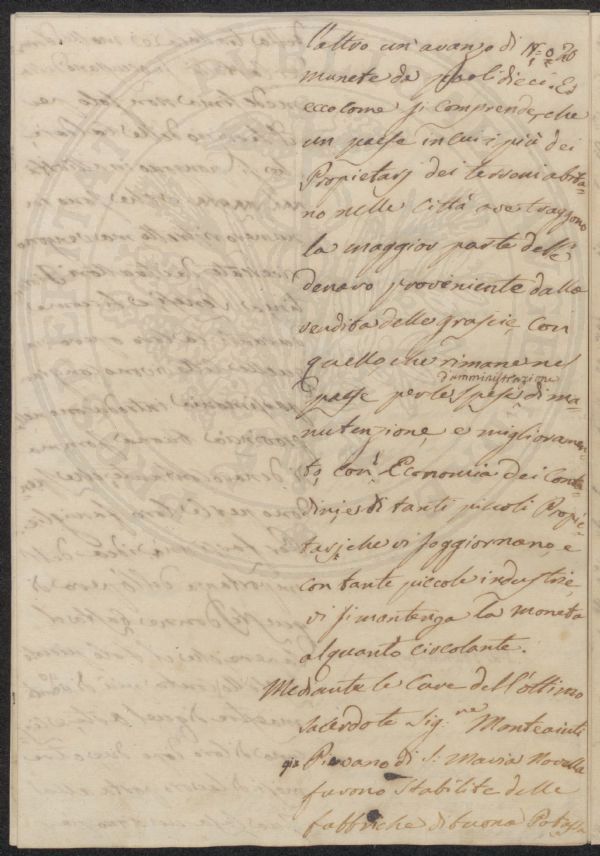 l'altro un'avanzo di N.° 20
munete da paoli dieci. Ed
ecco come si comprende, che
un paese in cui i più dei
Proprietarj dei terreni abita-
no nelle Città ove traggono
la maggior parte dell
denaro proveniente dalla
vendita delle grascie, con
quello che rimane nel
d'amministrazione
paese per le spese di ma-
nutenzione, e miglioramen-
to, con Economia dei Conta-
dini, e di tanti piccoli Propie-
tarj che vi soggiornano e
con tante piccole industrie,
vi si mantenga la moneta
alquanto circolante.
Mediante le Cure dell'ottimo
sacerdote Sig.re Monteainti
già Pievano di S. Maria Novella
furono stabilite delle
fabbriche di buona